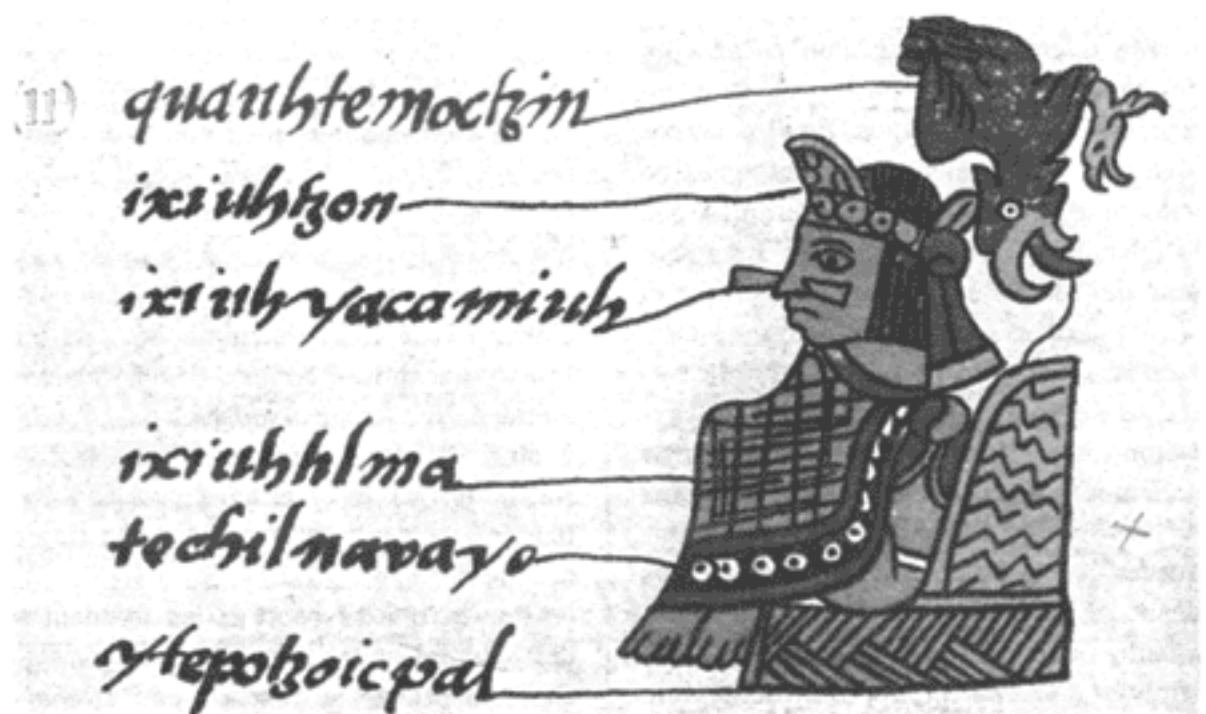 11) quauhtemoctzin
ixiuhtzon
ixiuhyacamiuh
ixiuhtilma
techilnavayo
ytepotzoicpal